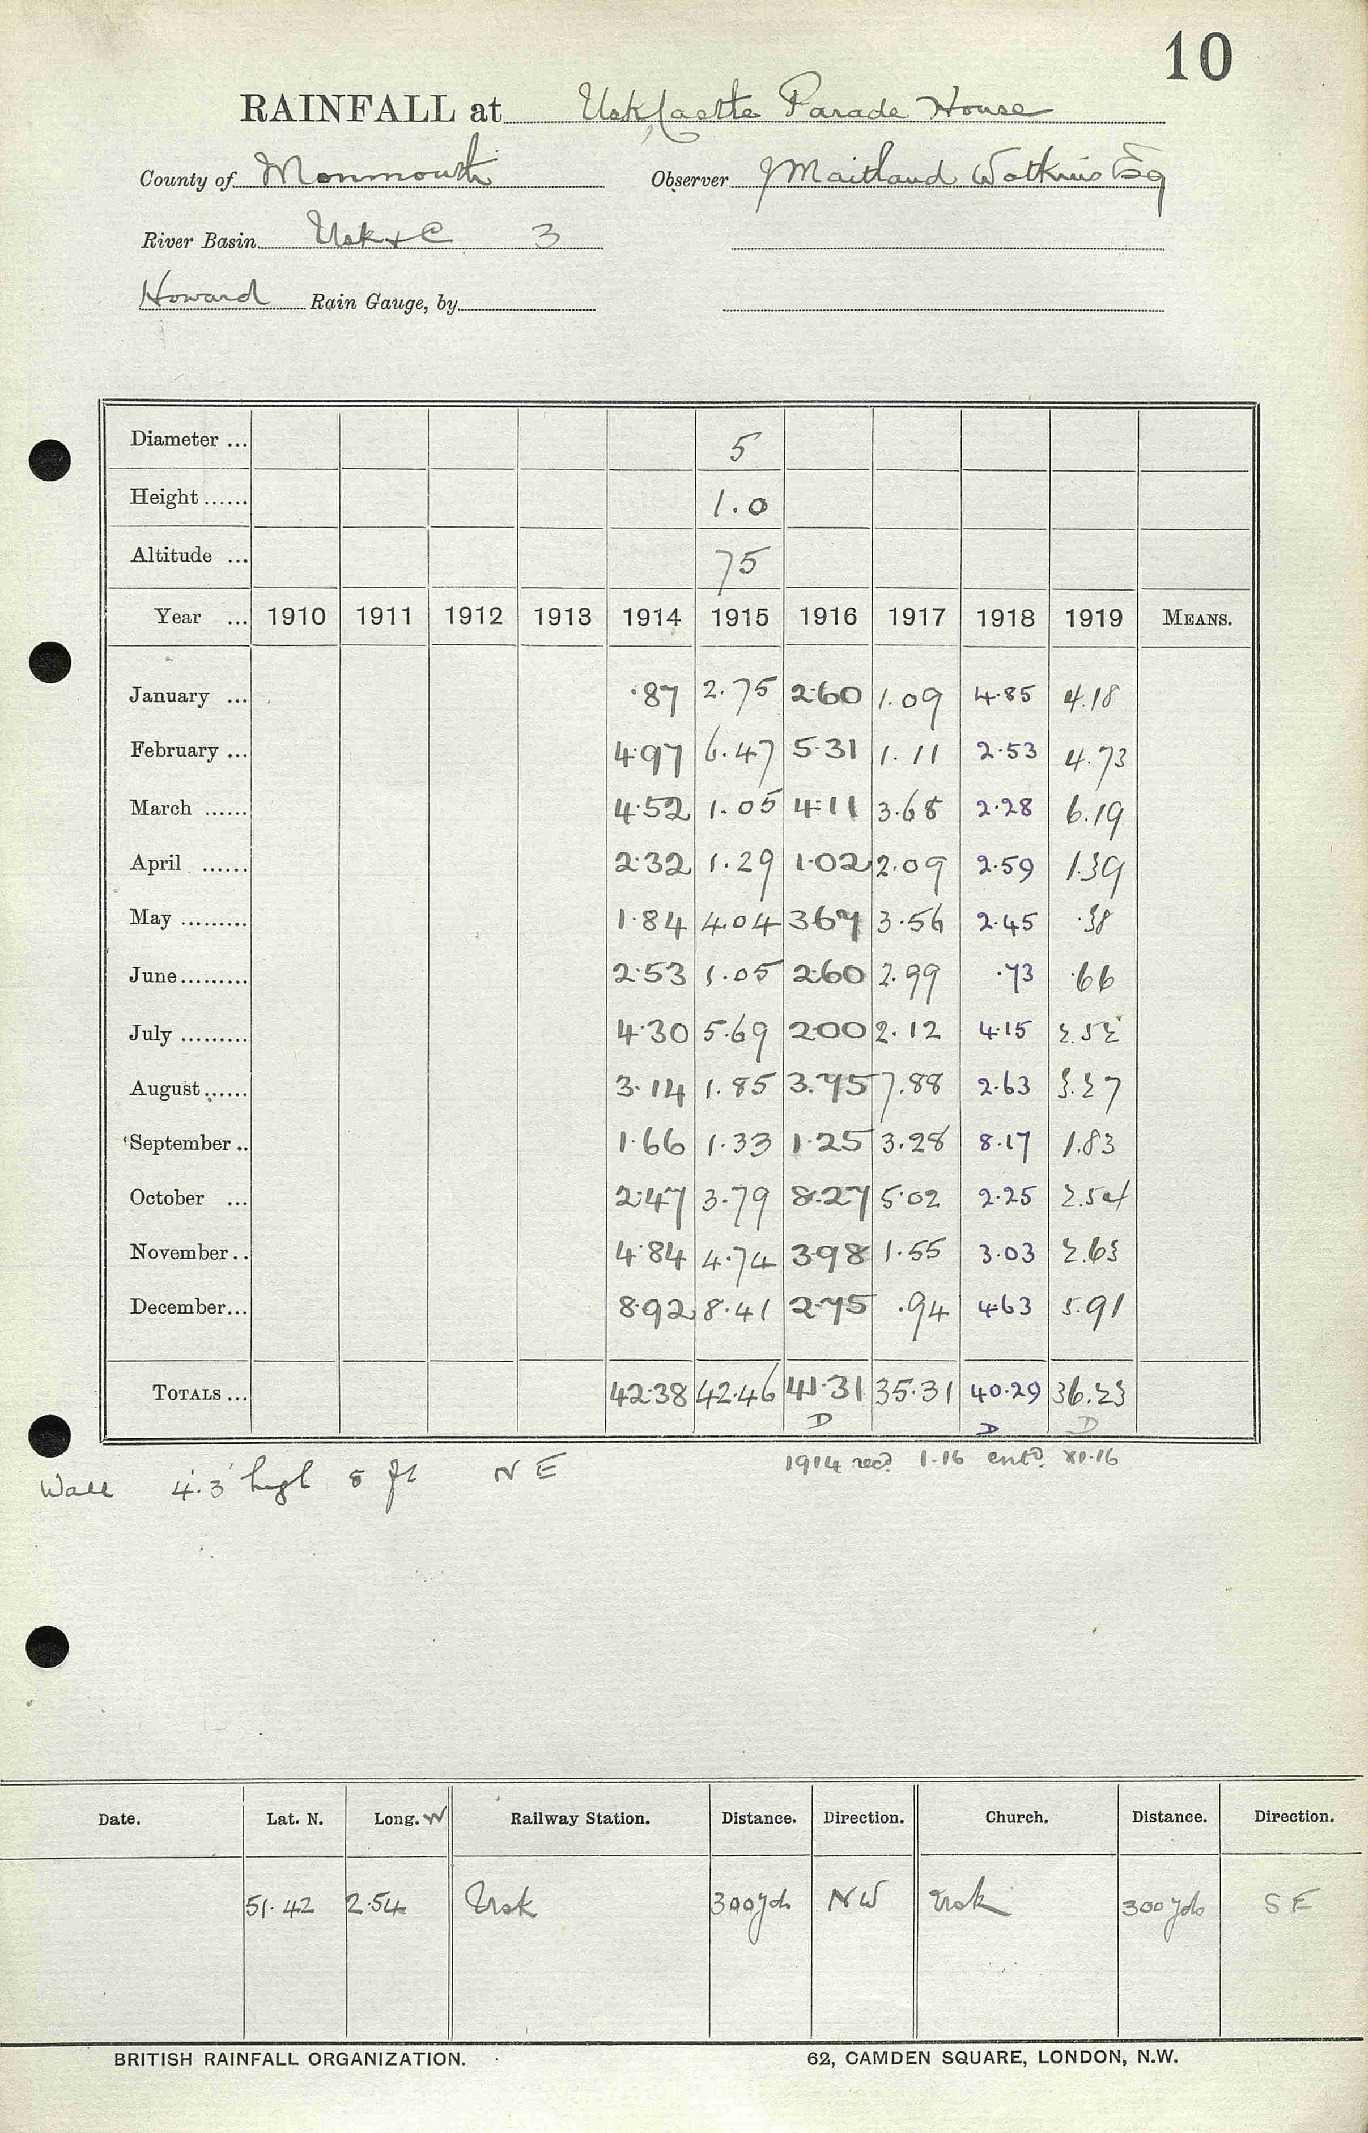 10
RAINFALL at Usk, Castle Parade House
County of Monmouth Observer J Maitland Watkins Esq
River Basin Usk & C 3
Howard Rain Gauge, by
Diameter ... 5
Height ...... 1.0
Altitude ... 75
Year ... 1910 1911 1912 1913 1914 1915 1916 1917 1918 1919 MEANS.
January ... .87 2.75 2.60 1.09 4.85 4.18
February ... 4.97 6.47 5.31 1.11 2.53 4.73
March ...... 4.52 1.05 4.11 3.68 2.28 6.19
April ...... 2.32 1.29 1.02 2.09 2.59 1.39
May ......... 1.84 4.04 3.67 3.56 2.45 .38
June......... 2.53 1.05 2.60 2.99 .73 .66
July ......... 4.30 5.69 2.00 2.12 4.15 2.52
August...... 3.14 1.85 3.75 7.88 2.63 3.27
September .. 1.66 1.33 1.25 3.28 8.17 1.83
October ... 2.47 3.79 8.27 5.02 2.25 2.54
November.. 4.84 4.74 3.98 1.55 3.03 2.63
December... 8.92 8.41 2.75 .94 4.63 5.91
TOTALS ... 42.38 42.46 41.31 35.31 40.29 36.23
D D D
1914 recd. 1.16 entd. XI.16
Wall 4.3 high 8 ft N E
Date. Lat. N. Long. W Railway Station. Distance. Direction. Church. Distance. Direction.
51.42 2.54 Usk 300 yds NW Usk 300 yds S E
BRITISH RAINFALL ORGANIZATION. 62, CAMDEN SQUARE, LONDON, N.W.